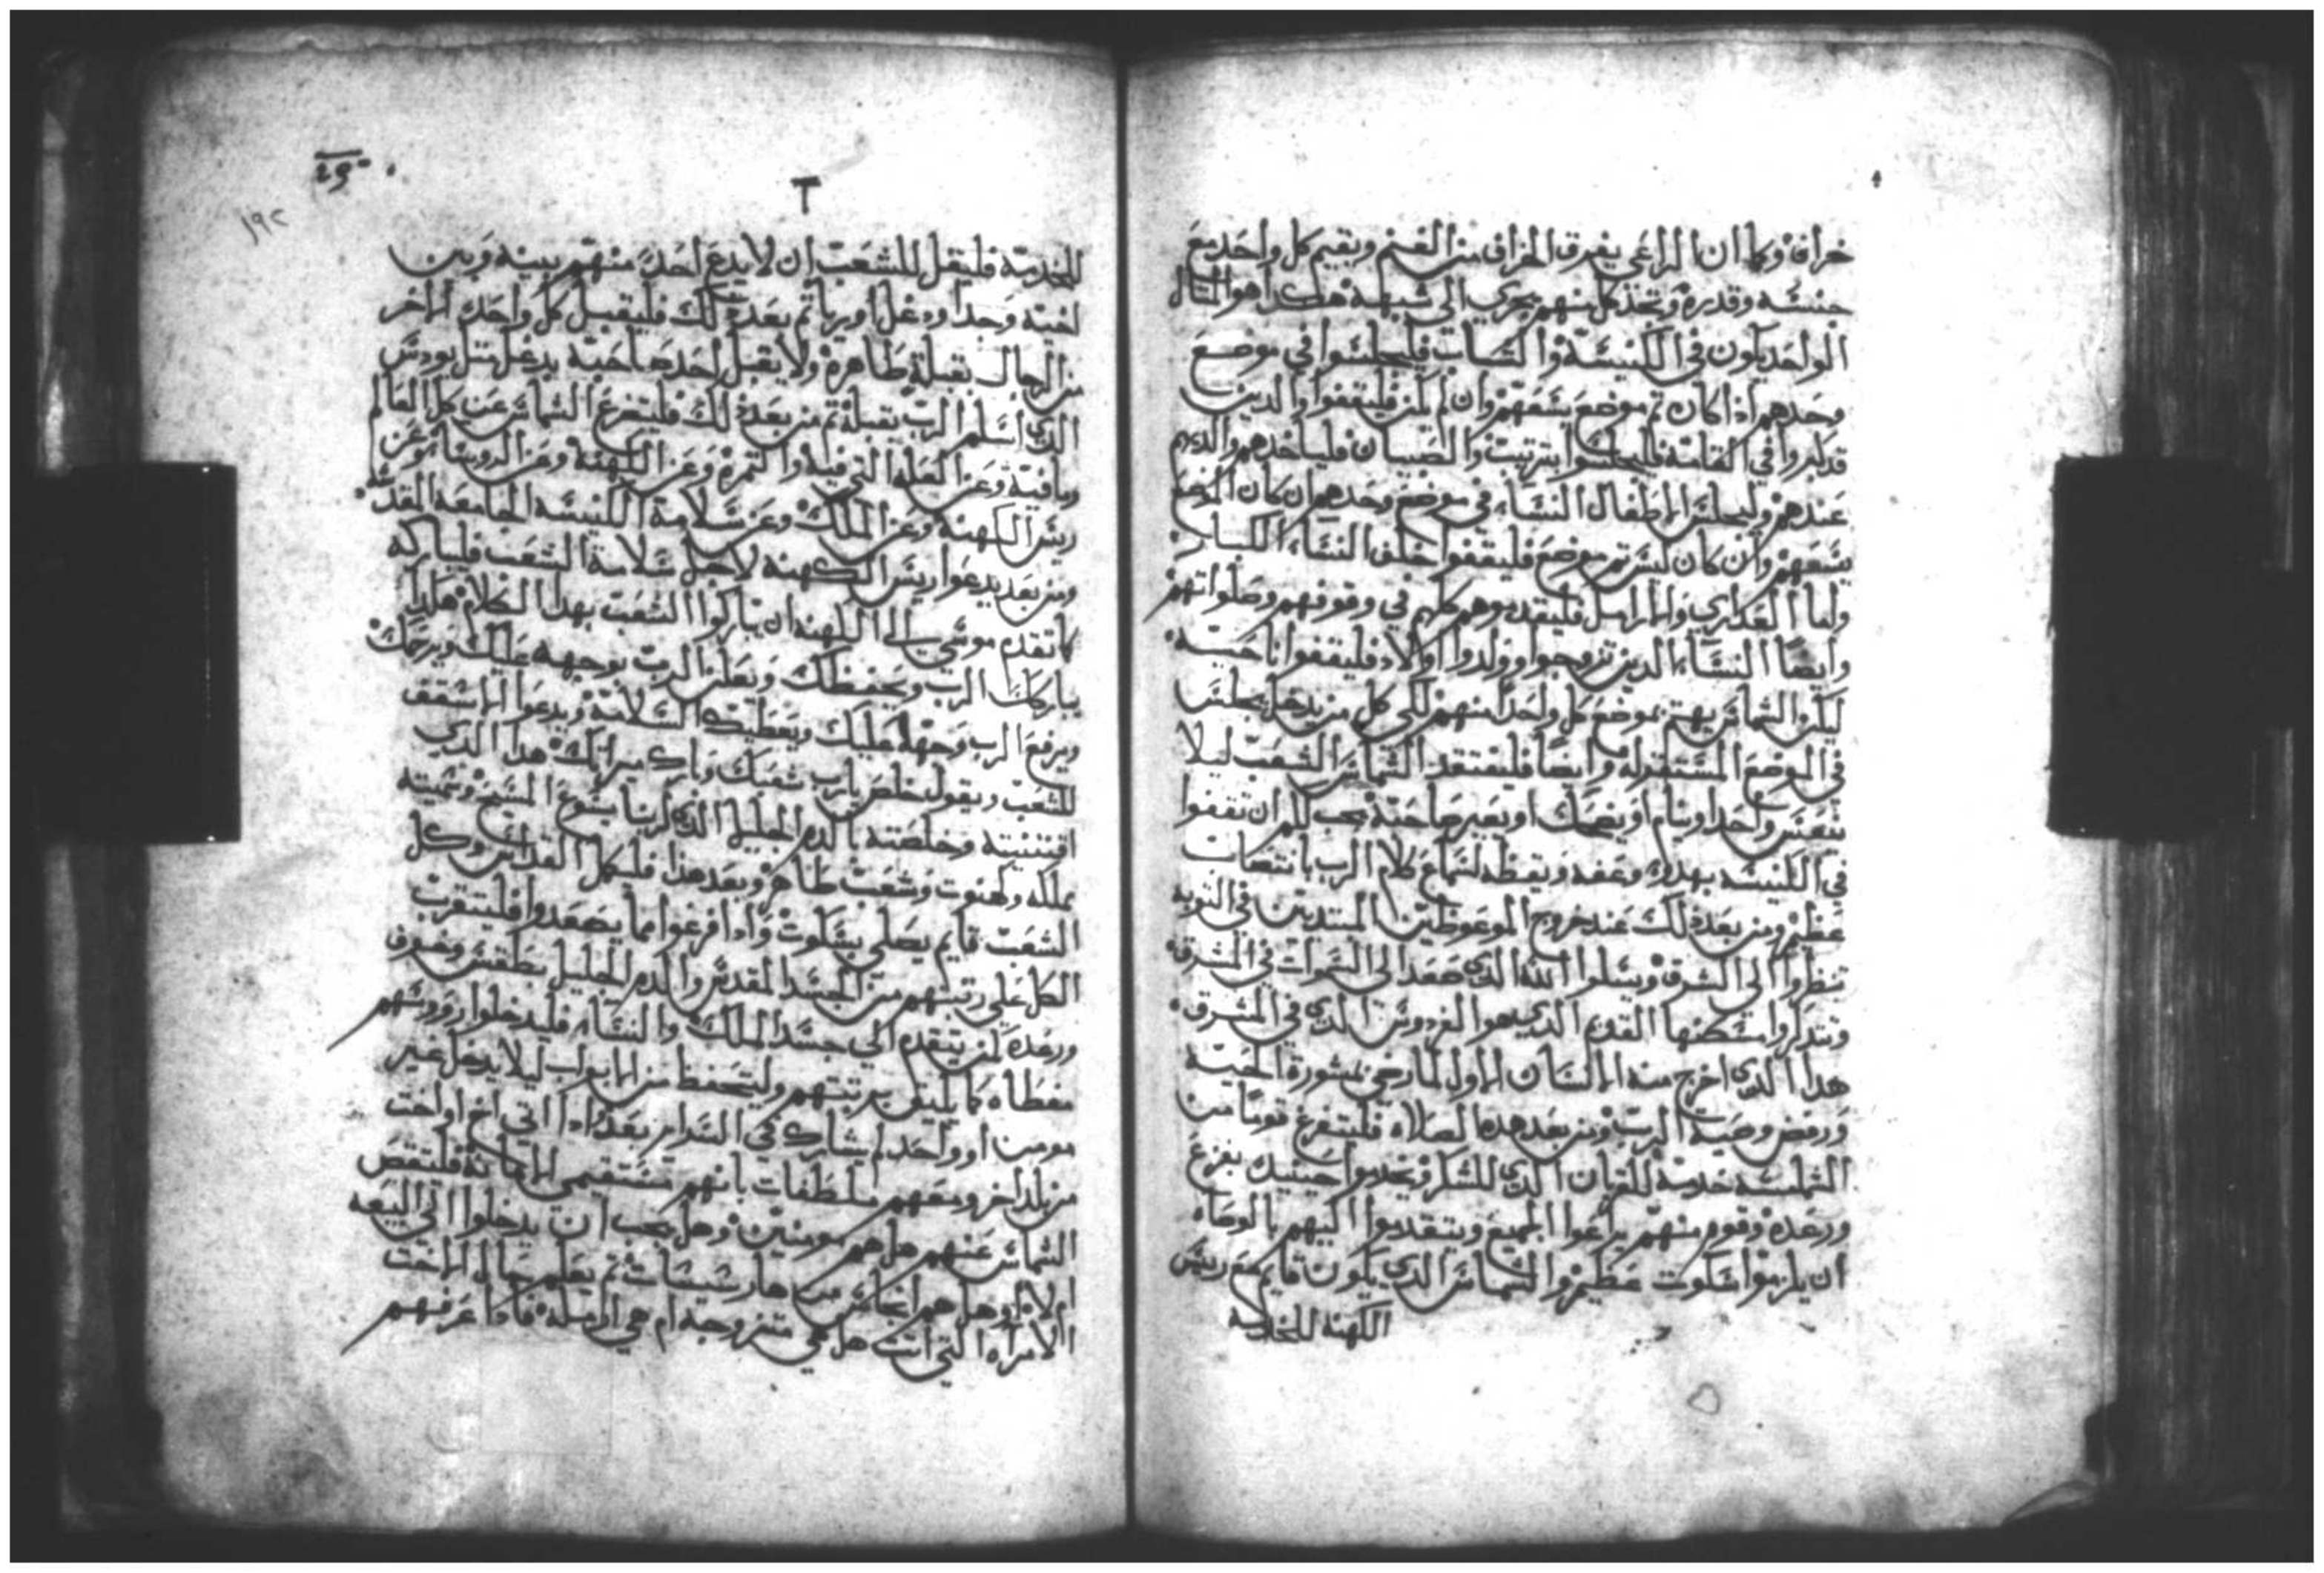 خراف وكما ان الراعي يفرق الخراف من الغنم ويقيم كل واحد مع
جنسه وقدره وتخذ كل منهم يجري الي شبهه هكذا هو المثال
الواحد يكون في الكنيسة والشباب فليجلسوا في موضع
وحدهم اذا كان ثم موضع يسعهم وان لم يكن فليقفوا والدين
قد كبروا في القامة فليجلسوا بترتيب والصبيان فلياخدهم والديهم
عندهم وليجلس الاطفال النساء في موضع وحدهم ان كان الموضع
يسعهم وان كان ليس ثم موضع فليقفوا خلف النساء الكبار
واما العداري والارامل فليقدموهم كلهم في وقوفهم وصلواتهم
وايضا النساء الدين تزوجوا وولدوا اولاد فليقفوا ناحية
ليكن الشماس يهتم بموضع كل واحد منهم لكي كل من يدخل يجلس
في الموضع المستقر له وايضا فليفتقد الشماس الشعب ليلا
ينعس واحد او ينام او يضحك او يعير صاحبه يجب لهم ان يقفوا
في الكنيسه بهدو وعفه ويقظه لسماع كلام الرب بانتصات
عظيم ومن بعد ذلك عند خروج الموعوظين المبتديين في التوبه
ينظروا الي الشرق ويسلوا الله الدي صعد الي السموات في المشرق
ويتدكروا مسكنها القديم الدي هو الفردوس الدي في المشرق
هدا الدي اخرج منه الانسان الاول لما رضي بمشورة الحية
ورفض وصية الرب ومن بعد هده الصلاه فليتفرغ قوما من
الشمامسه خدمة للقربان الدي للشكر ويخدموا حينيد بفزع
ورعدة وقوم منهم يراعوا الجميع ويتقدموا اليهم بالوصاه
ان يلزموا سكوت عظيم والشماس الدي يكون قايم مع ريس
الكهنة للخدمة
٢
١٩٢
للخدمة فليقل للشعب ان لا يدع احد منهم بينه وبين
اخيه وحد او دغل او ريا ثم بعد ذلك فليقبل كل واحد الاخر
من الرجال بقبلة طاهرة ولا يقبل احد صاحبه بدغل مثل يودس
الدي اسلم الرب بقبلة ثم من بعد ذلك فليتفرغ الشماس عن كل العالم
ومافيه وعن الغله التي فيه والثمرة وعن الكهنه وعن الروسا وعن
ريس الكهنه وعن الملك وعن سلامة الكنيسه الجامعه المقدسه
ومن بعد يدعوا ريس الكهنه لاجل سلامة الشعب فليباركه
كما تقدم موسي الي الكهنه ان يباركوا الشعب بهدا الكلام هكدا
يباركك الرب ويحفظك ويعلن الرب بوجهه عليك ويرحمك
ويرفع الرب وجهه عليك ويعطيك السلامة ويدعوا الاسقف
للشعب ويقول خلص يا رب شعبك وبارك ميراتك هدا الدي
اقتنيته وخلصته بالدم الجليل الدي لربنا يسوع المسيح وسميته
مملكه وكهنوت وشعب طاهر وبعد هذا فليكمل القداس وكل
الشعب قايم يصلي بسكوت وادا فرغوا مما يصعدوا فليتقرب
الكل علي رتبتهم من الجسد المقدس والدم الجليل بطقس وخوف
ورعدة كمن يتقدم الي جسد الملك والنساء فليدخلوا رووسهم
مغطاه كما يليق برتبتهم وليتحفظ من الابواب ليلا يدخل غير
مومن او واحد لم يشارك في السراير بعد اذا اتي اخ او اخت
من بلد اخر ومعهم ملطفات بانهم مستقيمي الامانة فليتقص
الشماس عنهم هل هم مومنين وهل يجب ان يدخلوا الي البيعه
ام لا او هل هم انجاس من هارسيسات ثم يعلم حال الاخت
الامراه التي اتت هل هي متزوجة ام هي ارملة فادا عرفهم